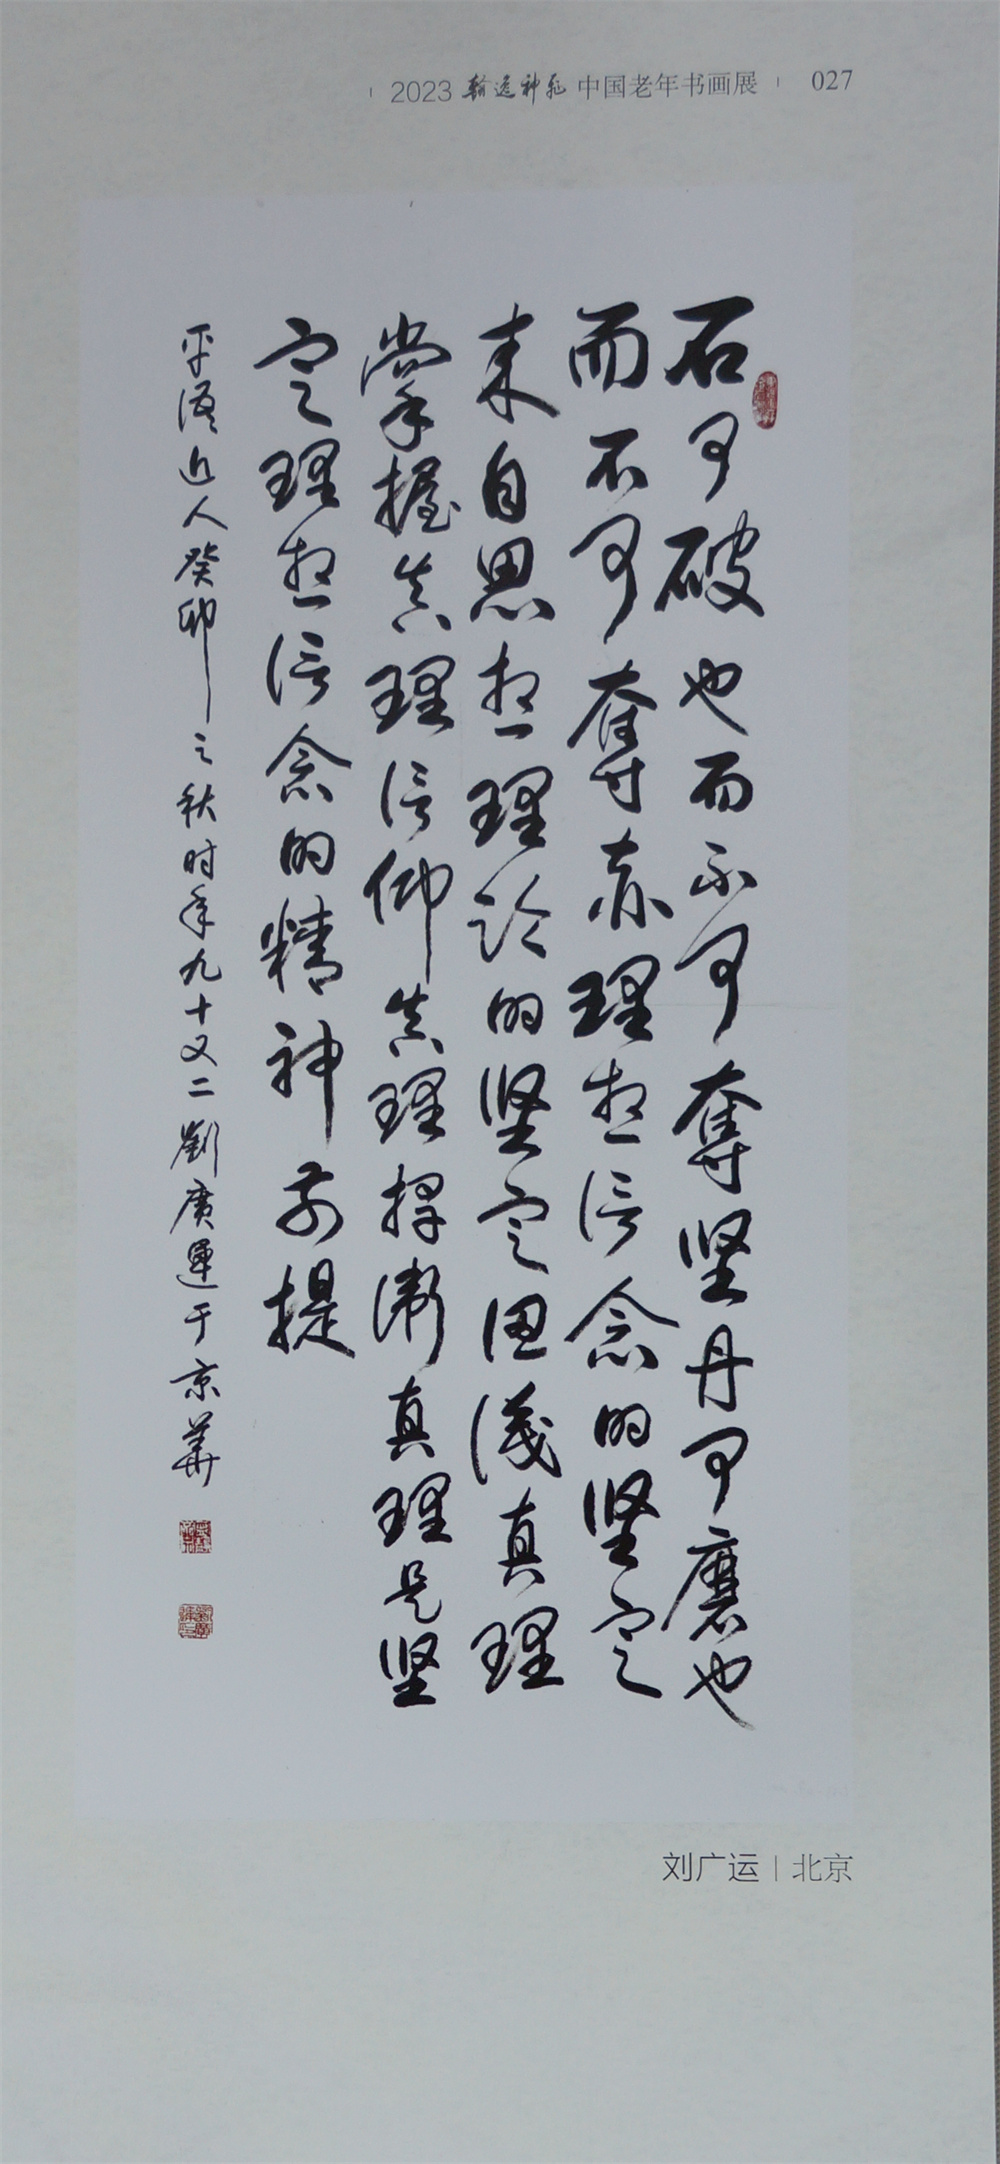 2023 翰逸神飞 中国老年书画展 027
石可破也而不可奪坚丹可磨也
而不可奪赤理想信念的坚定
来自思想理论的坚定认识真理
掌握真理信仰真理捍衛真理是坚
定理想信念的精神前提
平语近人癸卯之秋时年九十又二劉廣運于京華
刘广运 北京